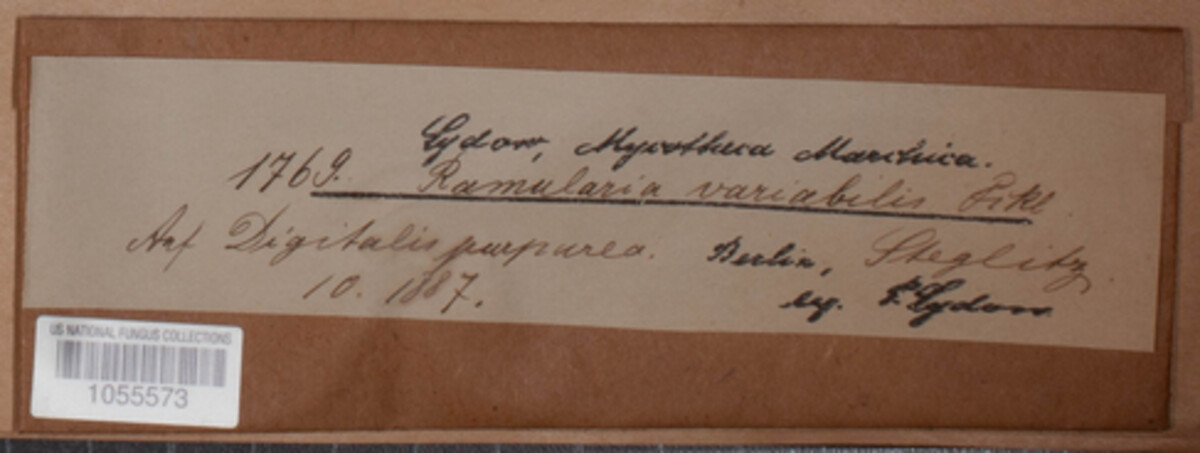 Sydow, Mycotheca Marchica.
1769. Ramularia variabilis Fckl.
Auf Digitalis purpurea. Berlin, Steglitz
10. 1887. leg. P. Sydow
US NATIONAL FUNGUS COLLECTIONS
1055573